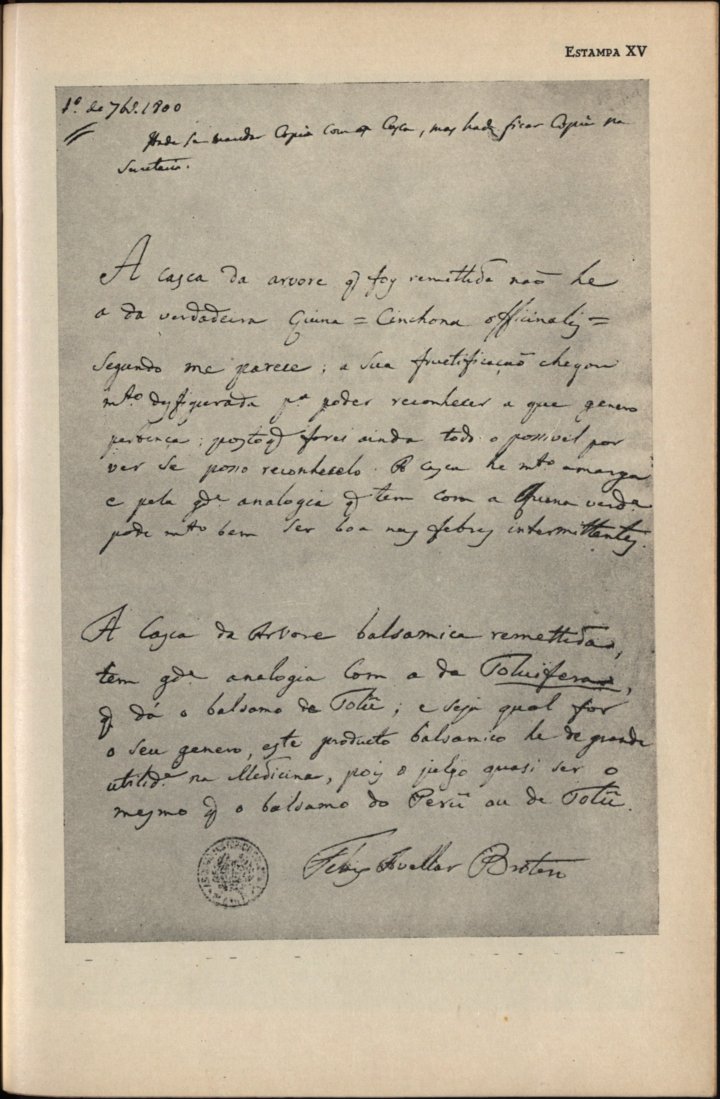 ESTAMPA XV
1º. de 7bro. 1800
Hade se mandar Copia com a Casca, mas hade ficar Copia na
Secretaria.
A casca da arvore q̃ foy remettida naõ he
a da verdadeira Quina = Cinchona officinalis =
segundo me parece; a sua fructificaçaõ chegou
mto. desfigurada pa. poder reconhecer a que genero
pertença; postoq̃ farei ainda todo o possivel por
ver se posso reconhecelo. A casca he mto. amarga
e pela gde. analogia q̃ tem com a Quina verda.
pode mto. bem ser boa nas febres intermittentes.
A Casca da Arvore balsamica remettida,
tem gde. analogia com a da Toluifera,
q̃ dá o balsamo de Tolũ; e seja qual for
o seu genero, este producto balsamico he de grande
utilide. na Medicina, pois o julgo quasi ser o
mesmo q̃ o balsamo do Perũ ou de Tolũ.
Felix Avellar Brotero